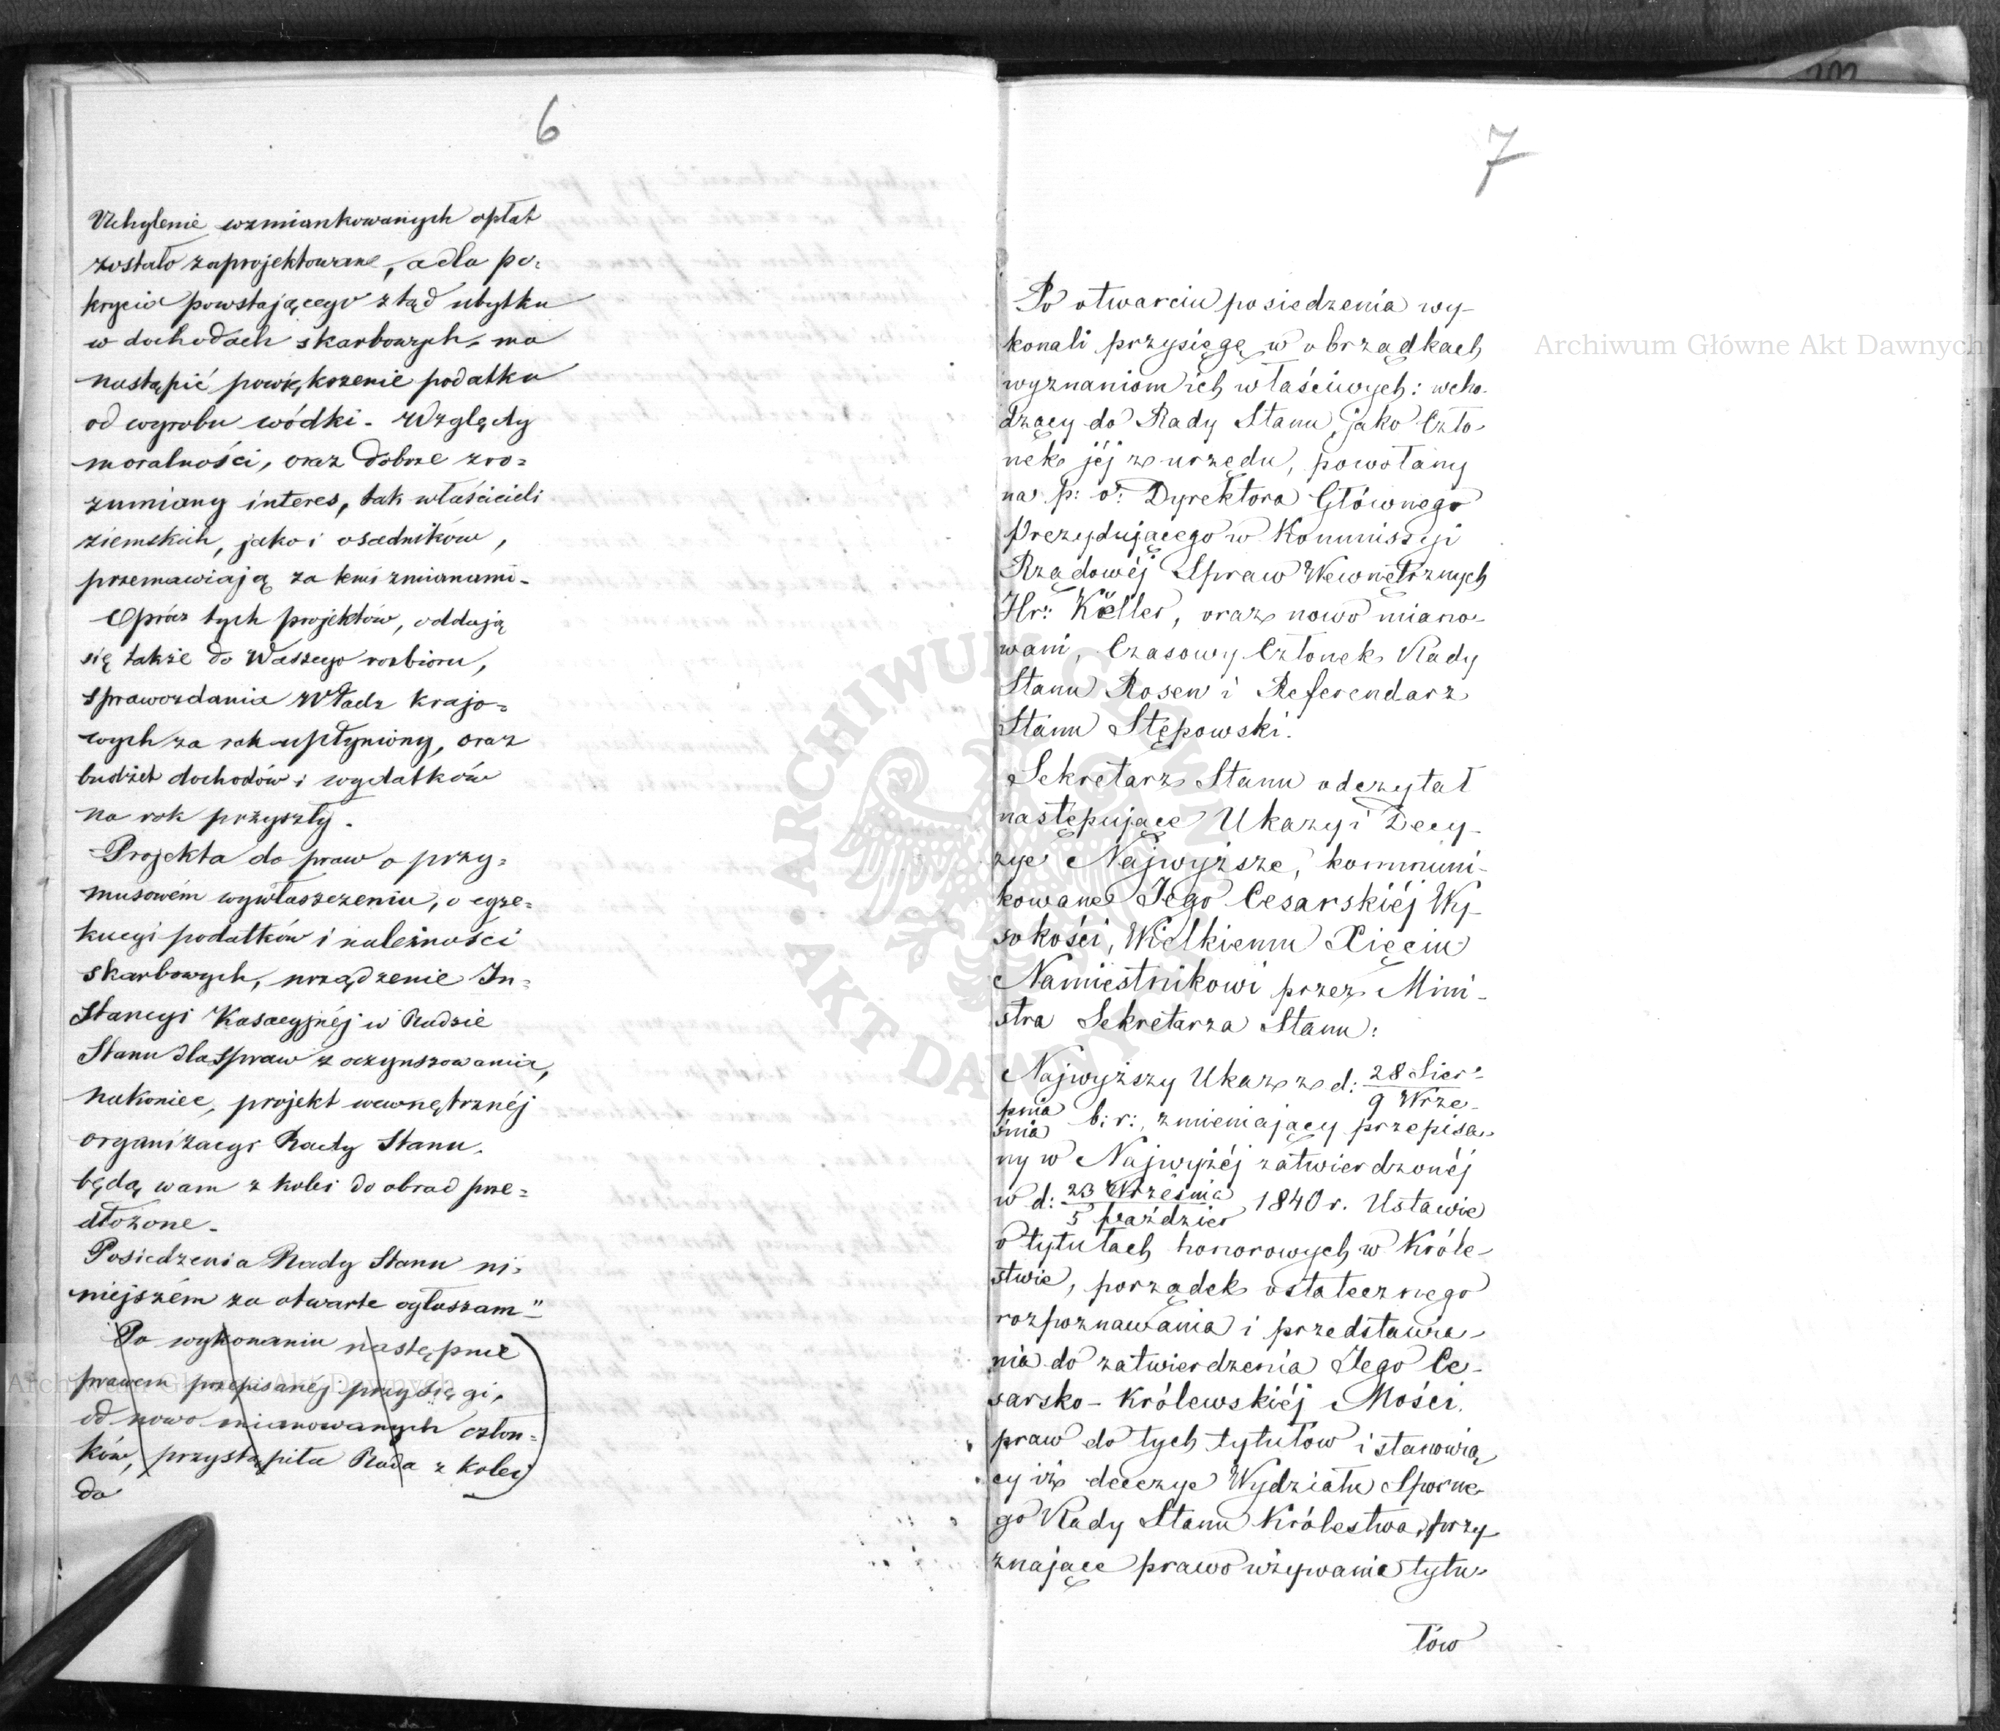 6
Uchylenie wzmiankowanych opłat
zostało zaprojektowane, a dla po=
krycia powstającego ztąd ubytku
w dochodach skarbowych, ma
nastąpić powiększenie podatku
od wyrobu wódki. Względy
moralności, oraz dobrze zro=
zumiany interes, tak właścicieli
ziemskich, jako i osadników,
przemawiają za temi zmianami.
Oprócz tych projektów, oddają
się także do Waszego rozbioru,
sprawozdania Władz krajo=
wych za rok upłyniony, oraz
budżet dochodów i wydatków
na rok przyszły.
Projekta do praw o przy=
musowém wywłaszczeniu, o egze=
kucyi podatków i należności
skarbowych, urządzenie In=
stancyi Kasacyjnéj w Radzie
Stanu dla spraw z oczynszowania,
nakoniec, projekt wewnętrznéj
organizacyi Rady Stanu.
będą wam z kolei do obrad prze=
dłożone.
Posiedzenia Rady Stanu ni=
niejszém za otwarte ogłaszam"
Po wykonaniu następnie
prawem przepisanéj przysięgi,
od nowo mianowanych człon=
ków, przystąpiła Rada z kolei
do
202
7
Po otwarciu posiedzenia wy-
konali przysięgę w obrządkach
wyznaniom ich właściwych: wcho-
dzący do Rady Stanu, jako Czło-
nek jéj z urzędu, powołany
na p: o: Dyrektora Głównego
Prezydującego w Kommissyi
Rządowéj Spraw Wewnętrznych
Hr: Keller, oraz nowo miano-
wani, Czasowy Członek Rady
Stanu Rosen i Referendarz
Stanu Stępowski.
Sekretarz Stanu odczytał
następujące Ukazy i Decy-
zye Najwyższe, kommuni-
kowane Jego Cesarskiéj Wy-
sokości, Wielkiemu Xięciu
Namiestnikowi przez Mini-
stra Sekretarza Stanu:
Najwyższy Ukaz z d: 28 Sier-
9 Wrze-
pnia
śnia b: r:, zmieniający przepisa-
ny w Najwyżéj zatwierdzonéj
w d: 23 Września
5 Paździer 1840 r. Ustawie
o tytułach honorowych w Króle-
stwie, porządek ostatecznego
rozpoznawania i przedstawia-
nia do zatwierdzenia Jego Ce-
sarsko-Królewskiéj Mości,
praw do tych tytułów i stanowią
cy iż decyzye Wydziału Sporne-
go Rady Stanu Królestwa, przy-
znające prawo używania tytu-
łów
Archiwum Główne Akt Dawnych
Archiwum Główne Akt Dawnych
ARCHIWUM GŁÓWNE AKT DAWNYCH